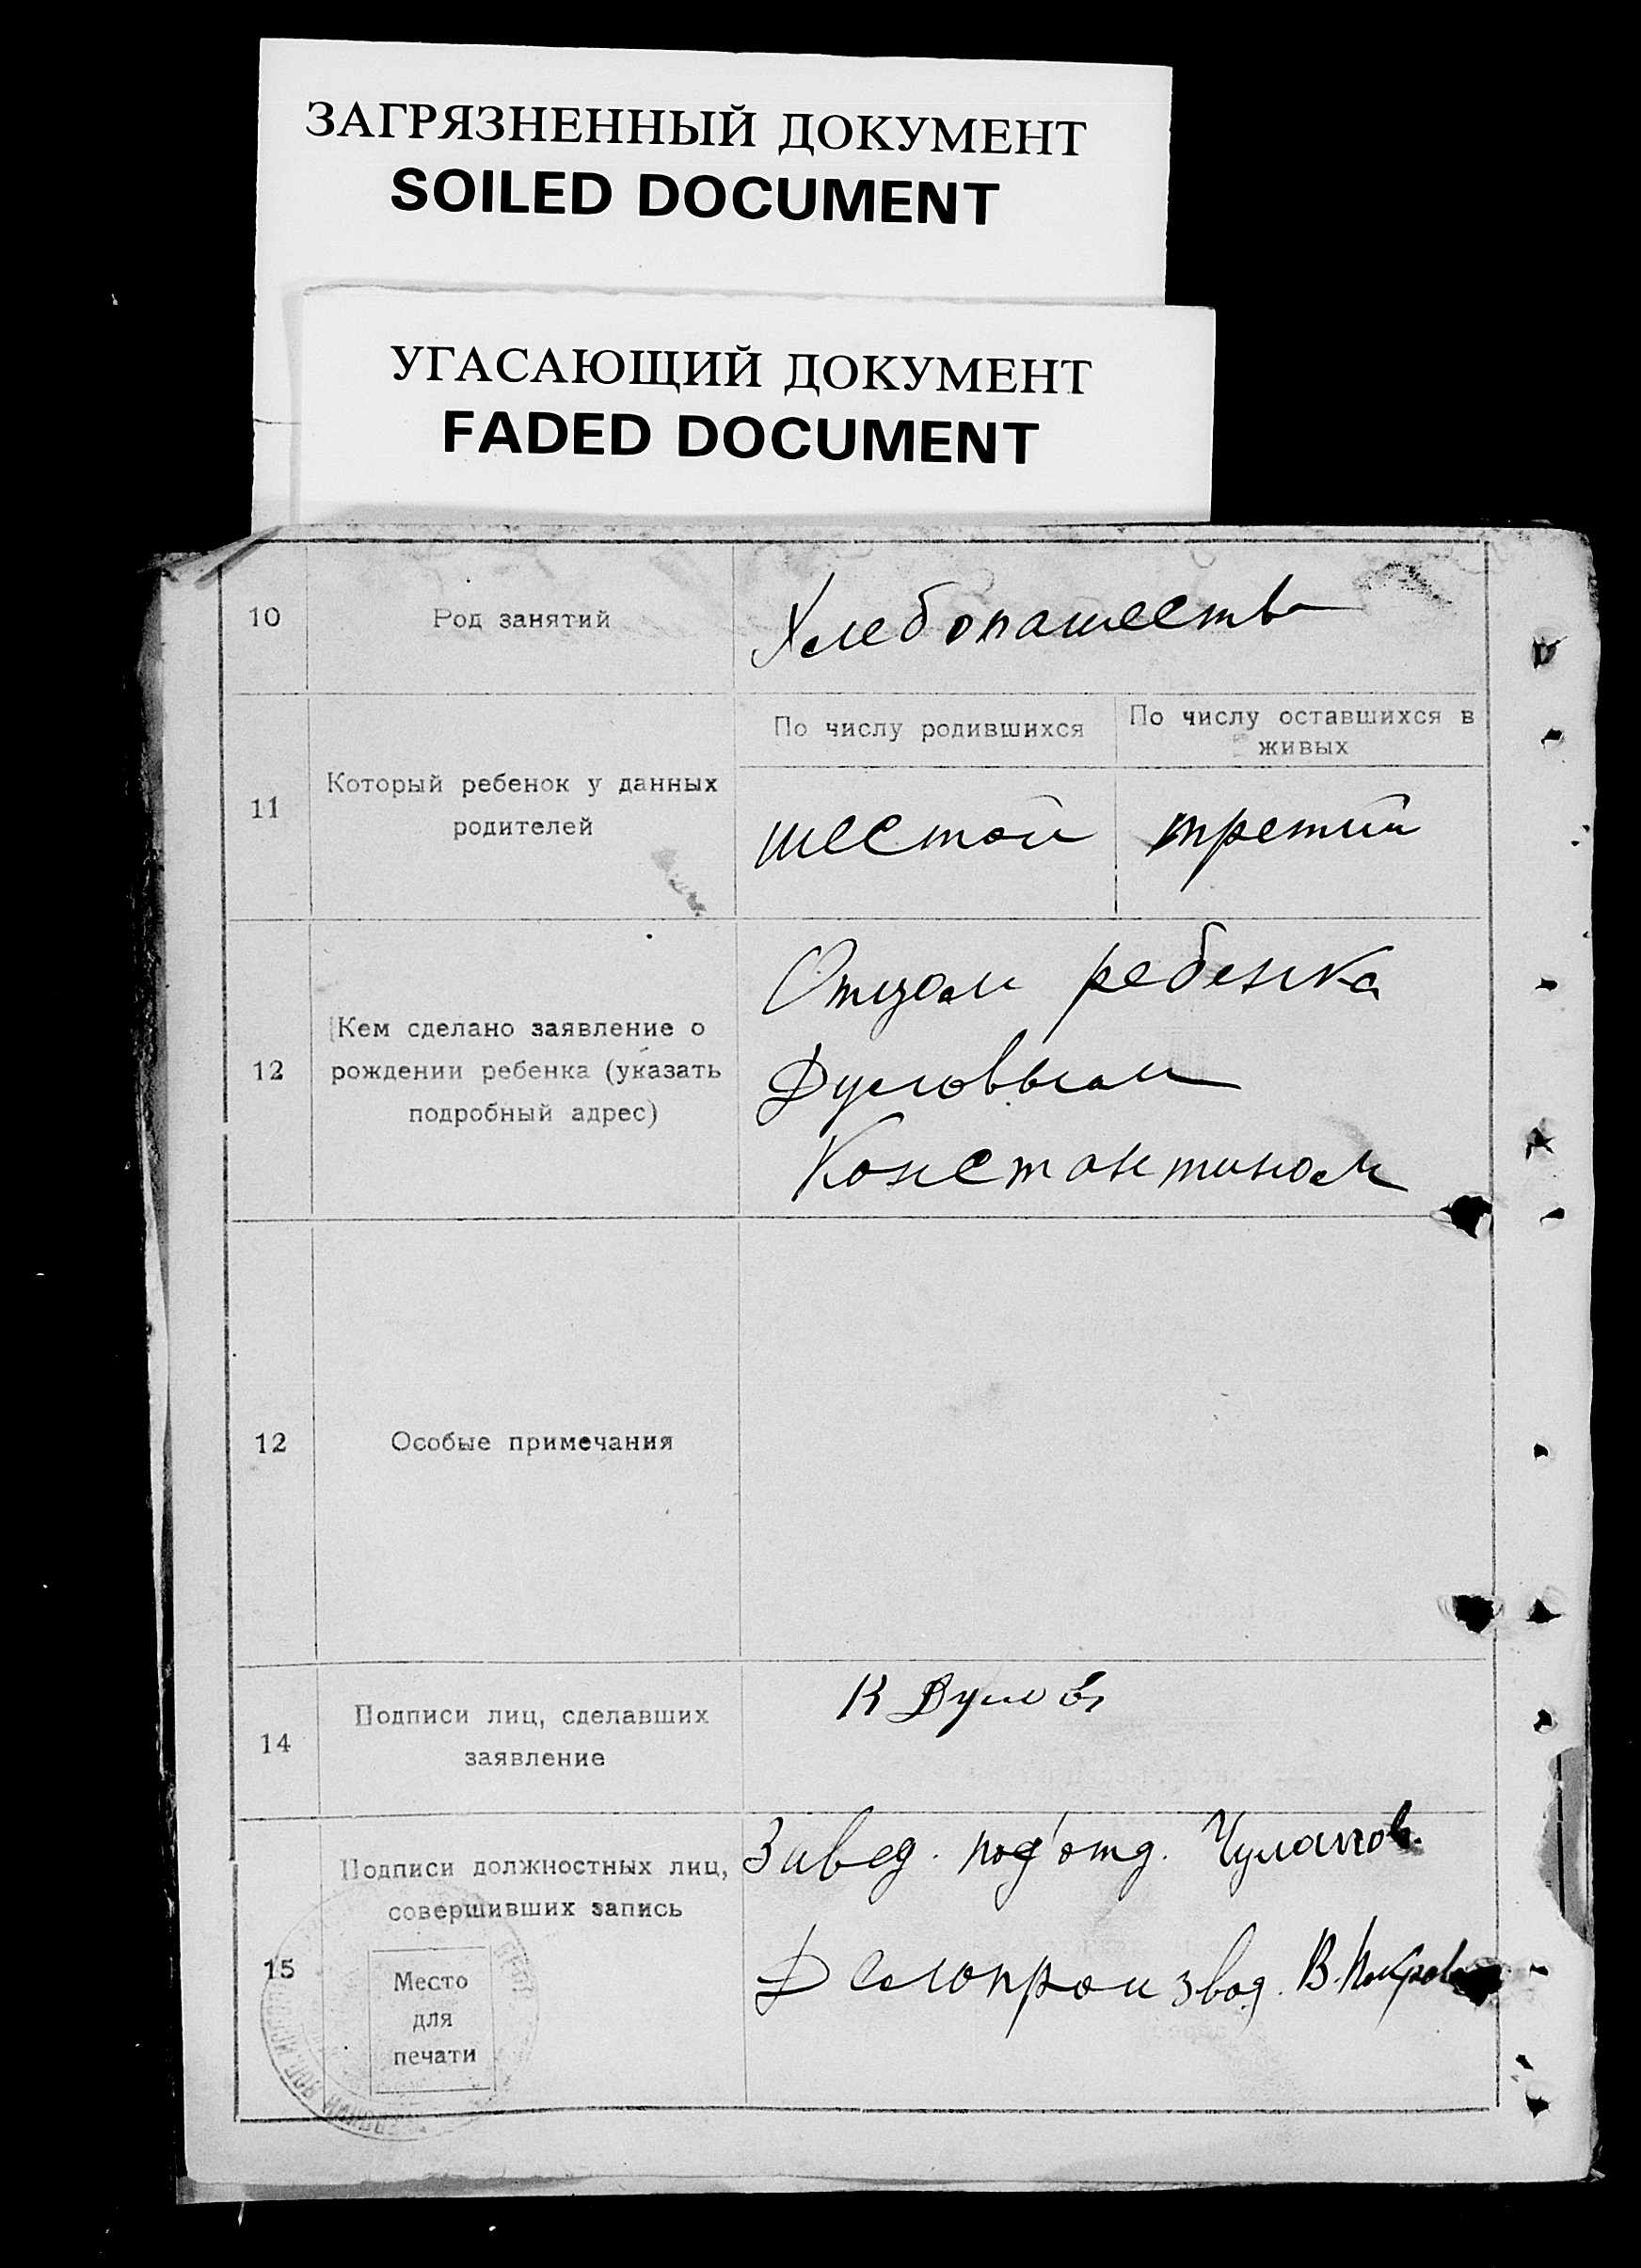 ЗАГРЯЗНЕННЫЙ ДОКУМЕНТ
SOILED DOCUMENT
УГАСАЮЩИЙ ДОКУМЕНТ
FADED DOCUMENT
10 Род занятий Хлебопашеств
По числу родившихся По числу оставшихся в
живых
11 Который ребенок у данных
родителей
шестой третий
12 Кем сделано заявление о
рождении ребенка (указать
подробный адрес)
Отцом ребенка
Дуловым
Константином
12 Особые примечания
14 Подписи лиц, сделавших
заявление
К Дулов
15 Подписи должностных лиц,
совершивших запись
Место
для
печати
Завед. под'отд.
Делопроизвод. В.